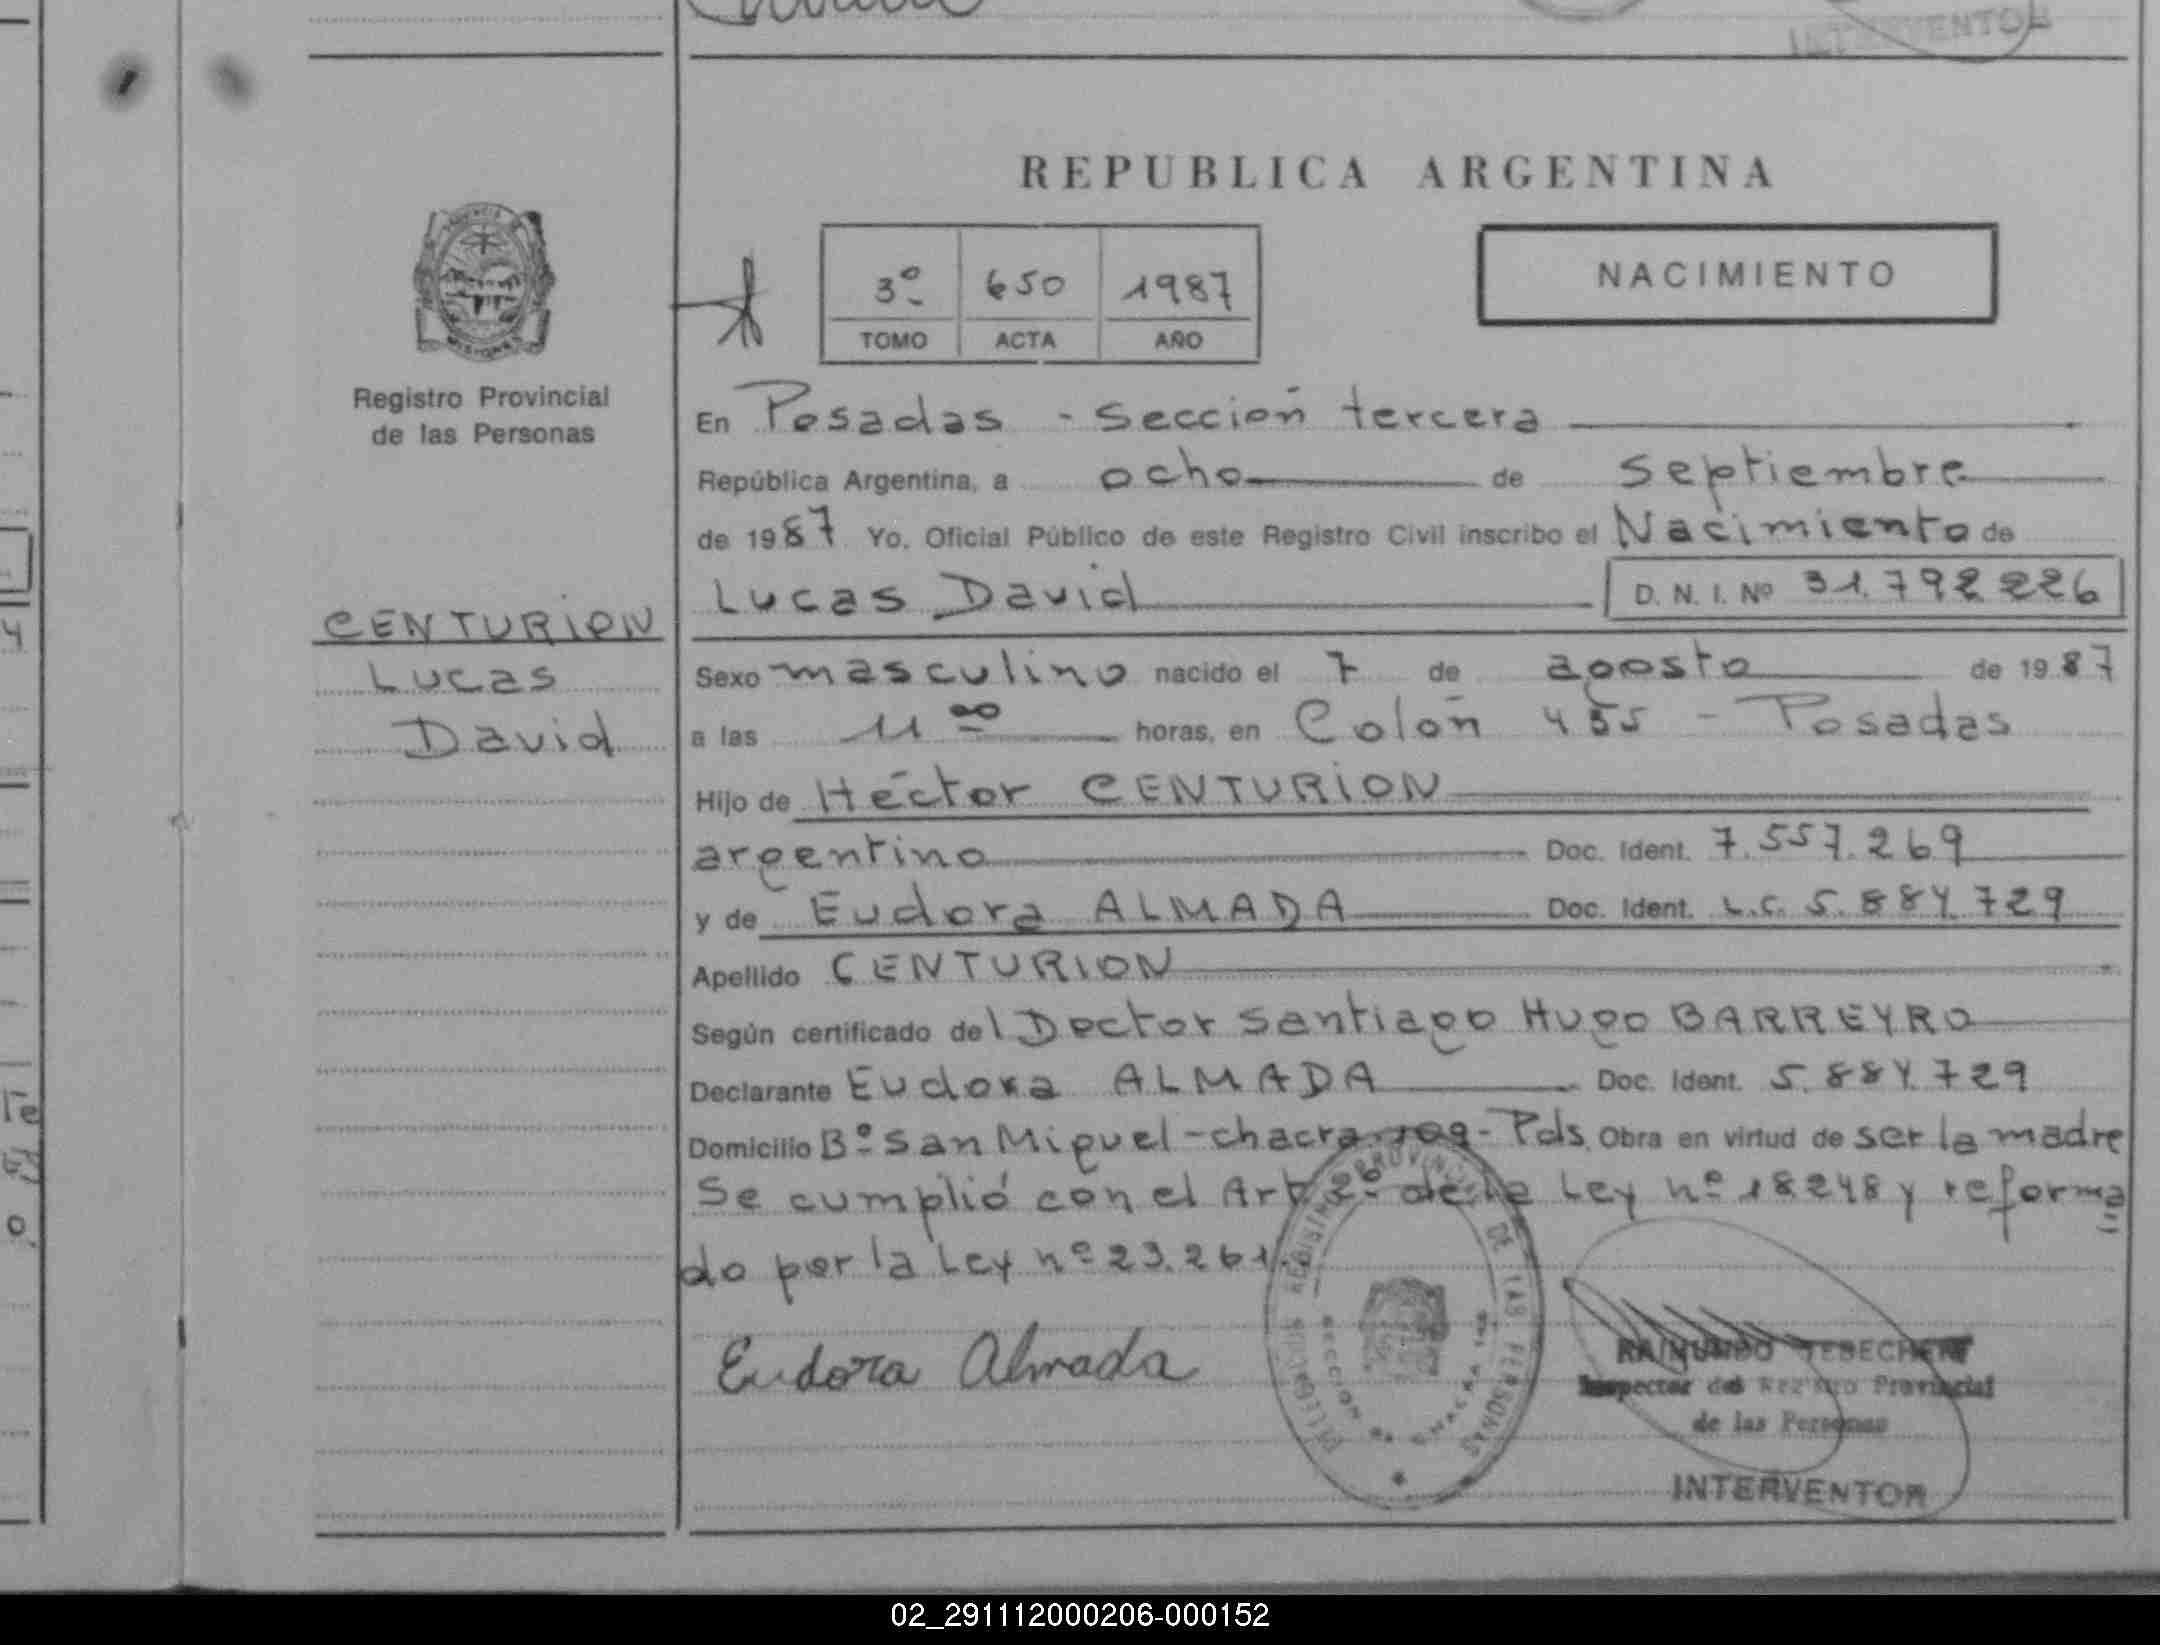 INTERVENTOR
REPUBLICA ARGENTINA
3º 650 1987
TOMO ACTA AÑO
NACIMIENTO
MISIONES
Registro Provincial
de las Personas
CENTURION
Lucas
David
En Posadas - Sección tercera
República Argentina, a ocho de Septiembre
de 1987 Yo, Oficial Público de este Registro Civil inscribo el Nacimiento de
Lucas David D. N. I. Nº 31.792.226
Sexo masculino nacido el 7 de agosto de 1987
a las 11 00 horas, en Colón 455 - Posadas
Hijo de Héctor CENTURION
argentino Doc. Ident. 7.557.269
y de Eudora ALMADA Doc. Ident. L.C. 5.884.729
Apellido CENTURION
Según certificado del Doctor Santiago Hugo BARREYRO
Declarante Eudora ALMADA Doc. Ident. 5.884.729
Domicilio Bº San Miguel - chacra 109 - Pds. Obra en virtud de ser la madre
Se cumplió con el Art 2º de la Ley nº 18248 y reforma
do por la Ley nº 23.261.
Eudora Almada
REGISTRO PROVINCIAL DE LAS PERSONAS
DELEGACION
SECCION
RAIMUNDO
Inspector del Registro Provincial
de las Personas
INTERVENTOR
02_291112000206-000152